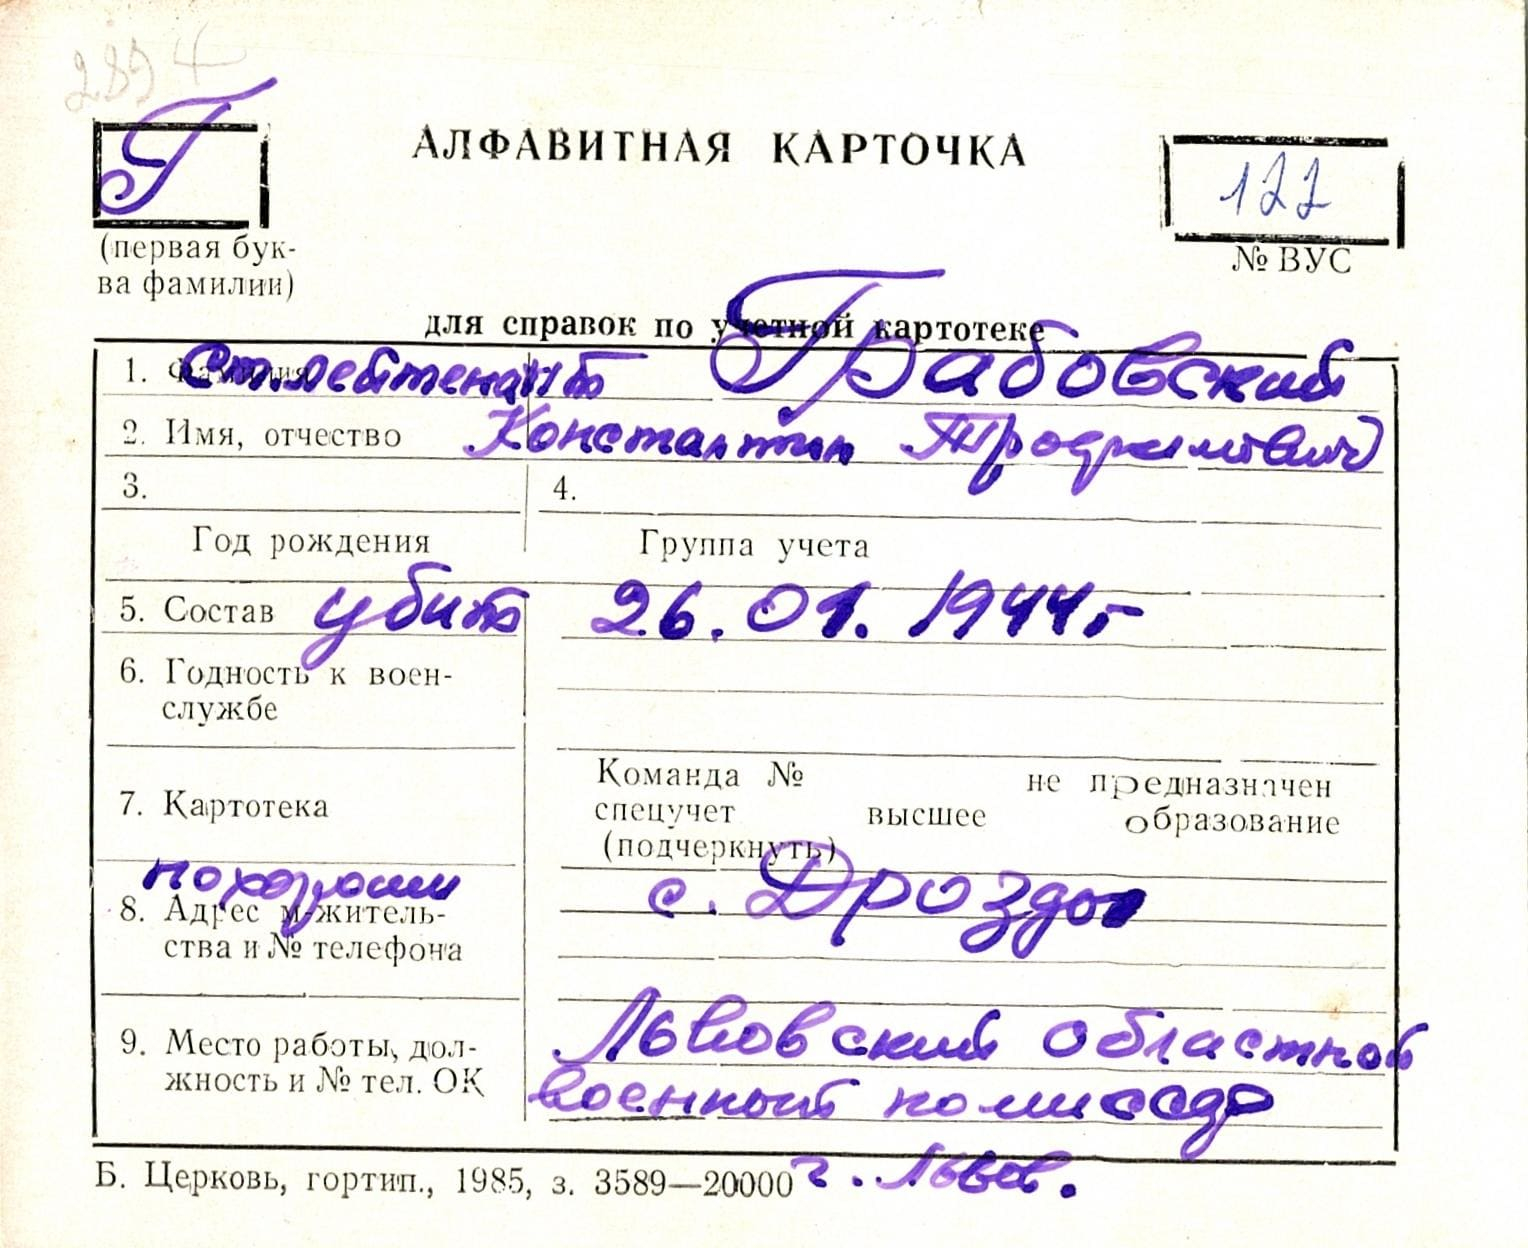 2894
Г
АЛФАВИТНАЯ КАРТОЧКА
122
(первая бук-
ва фамилии)
№ ВУС
для справок по учетной картотеке
1. Фамилия Ст. лейтенант Грабовский
2. Имя, отчество Константин Трофимович
3. 4.
Год рождения Группа учета
5. Состав убит 26.01.1944г
6. Годность к воен-
службе
7. Картотека
Команда № не предназначен
спецучет высшее образование
(подчеркнуть)
похорон с. Дрозды
8. Адрес м-житель-
ства и № телефона
9. Место работы, дол-
жность и № тел. ОК
Львовский областной
военный комиссар
Б. Церковь, гортип., 1985, з. 3589—20000 г. Львов.